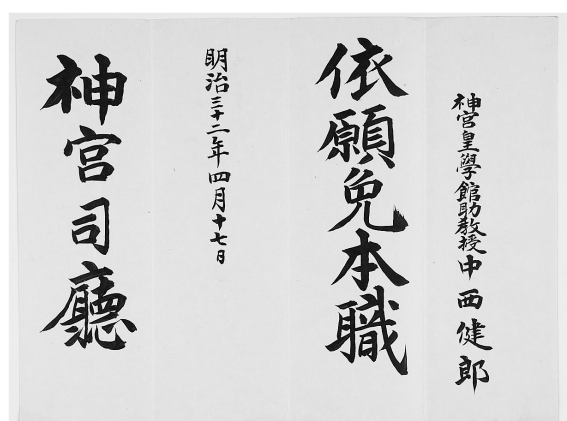 神宮皇學館助教授中西健郎
依願免本職
明治三十二年四月十七日
神宮司廳